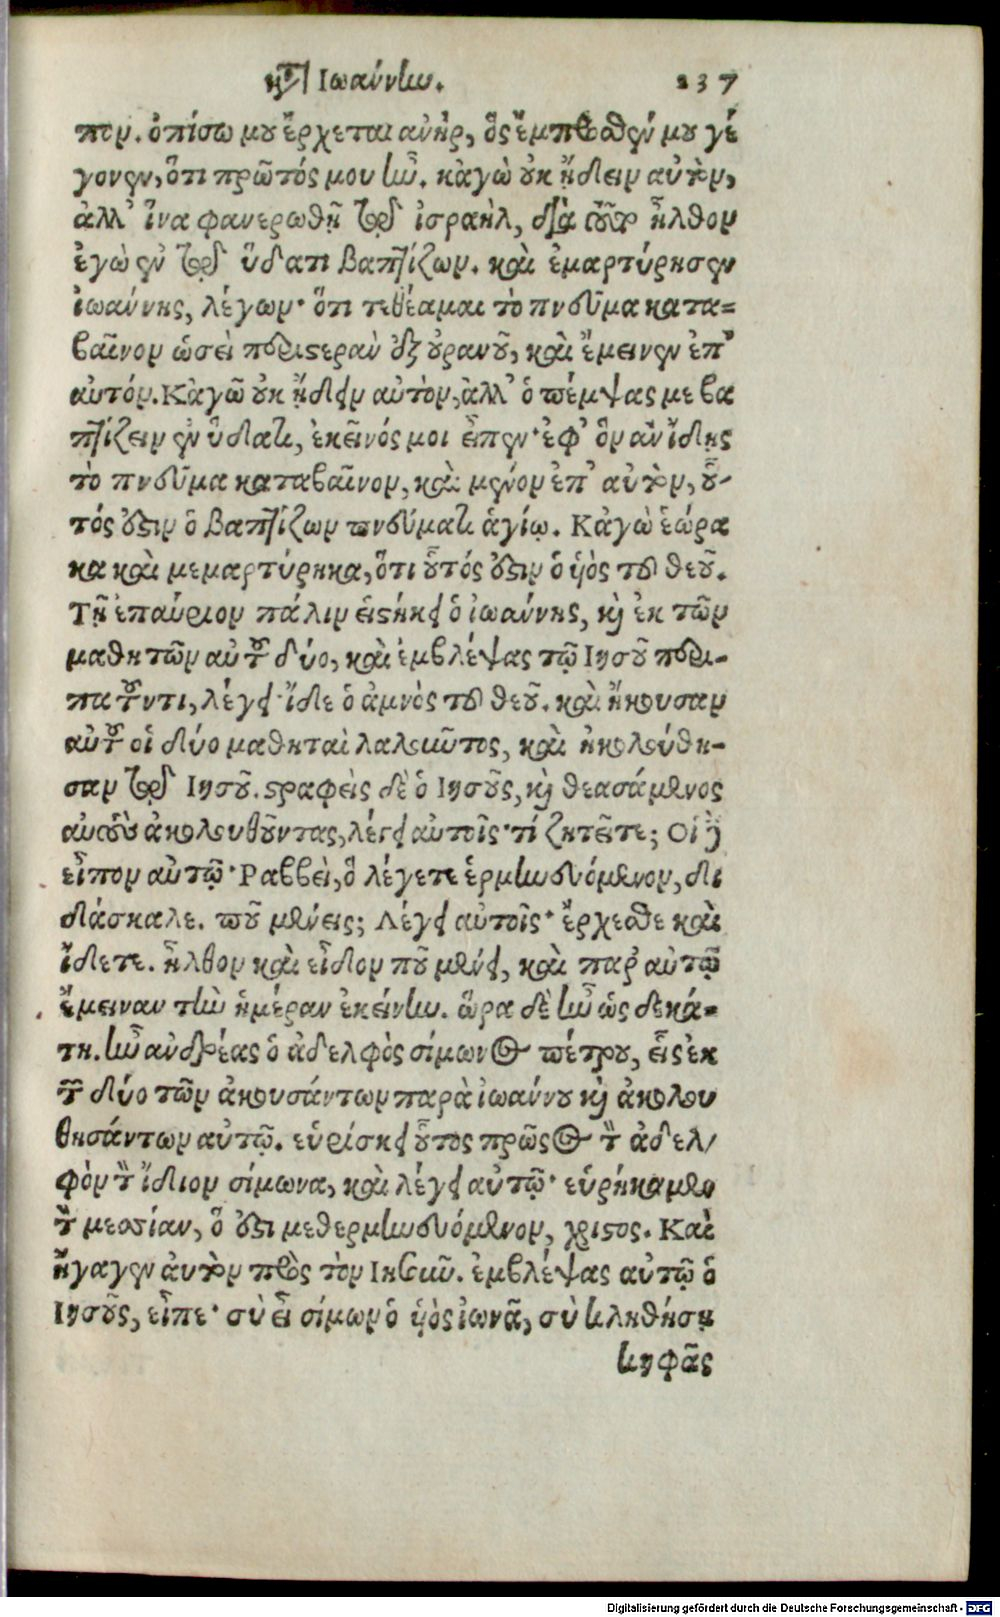 κατὰ Ἰωάννην. 237
πον. ὀπίσω μου ἔρχεται ἀνὴρ, ὃς ἔμπροσθέν μου γέ
γονεν, ὅτι πρῶτός μου ἦν. κἀγὼ οὐκ ᾔδειν αὐτὸν,
ἀλλ' ἵνα φανερωθῇ τῷ ἰσραὴλ, διὰ τοῦτο ἦλθον
ἐγὼ ἐν τῷ ὕδατι βαπτίζων. καὶ ἐμαρτύρησεν
ἰωάννης, λέγων· ὅτι τεθέαμαι τὸ πνεῦμα κατα=
βαῖνον ὡσεὶ περιστερὰν ἐξ οὐρανοῦ, καὶ ἔμεινεν ἐπ'
αὐτόν. Κἀγὼ οὐκ ᾔδειν αὐτὸν, ἀλλ' ὁ πέμψας με βα
πτίζειν ἐν ὕδατι, ἐκεῖνός μοι εἶπεν· ἐφ' ὃν ἂν ἴδῃς
τὸ πνεῦμα καταβαῖνον, καὶ μένον ἐπ' αὐτὸν, οὗ-
τός ἐστιν ὁ βαπτίζων πνεύματι ἁγίῳ. Κἀγὼ ἑώρα
κα καὶ μεμαρτύρηκα, ὅτι οὗτός ἐστιν ὁ ὑὸς τοῦ θεοῦ.
Τῇ ἐπαύριον πάλιν εἱστήκει ὁ ἰωάννης, καὶ ἐκ τῶν
μαθητῶν αὐτοῦ δύο, καὶ ἐμβλέψας τῷ Ἰησοῦ περι-
πατοῦντι, λέγει· ἴδε ὁ ἀμνὸς τοῦ θεοῦ. καὶ ἤκουσαν
αὐτοῦ οἱ δύο μαθηταὶ λαλοῦντος, καὶ ἠκολούθη-
σαν τῷ Ἰησοῦ. στραφεὶς δὲ ὁ Ἰησοῦς, καὶ θεασάμενος
αὐτοὺς ἀκολουθοῦντας, λέγει αὐτοῖς· τί ζητεῖτε; Οἱ δὲ
εἶπον αὐτῷ· Ραββεὶ, ὃ λέγετε ἑρμηνευόμενον, δι
δάσκαλε. ποῦ μένεις; Λέγει αὐτοῖς· ἔρχεσθε καὶ
ἴδετε. ἦλθον καὶ εἶδον ποῦ μένει, καὶ παρ' αὐτῷ
ἔμειναν τὴν ἡμέραν ἐκείνην. ὥρα δὲ ἦν ὡς δεκά=
τη. ἦν ἀνδρέας ὁ ἀδελφὸς σίμωνος πέτρου, εἷς ἐκ
τῶν δύο τῶν ἀκουσάντων παρὰ ἰωάννου καὶ ἀκολου
θησάντων αὐτῷ. εὑρίσκει οὗτος πρῶτος τὸν ἀδελ/
φὸν τὸν ἴδιον σίμωνα, καὶ λέγει αὐτῷ· εὑρήκαμεν
τὸν μεσσίαν, ὅ ἐστι μεθερμηνευόμενον, χριστος. Καὶ
ἤγαγεν ἀυτὸν πρὸς τὸν Ἰησοῦν. ἐμβλέψας αὐτῷ ὁ
Ἰησοῦς, εἶπε· σὺ εἶ σίμων ὁ ὑὸς ἰωνᾶ, σὺ κληθήσῃ
κηφᾶς
Digitalisierung gefördert durch die Deutsche Forschungsgemeinschaft - DFG